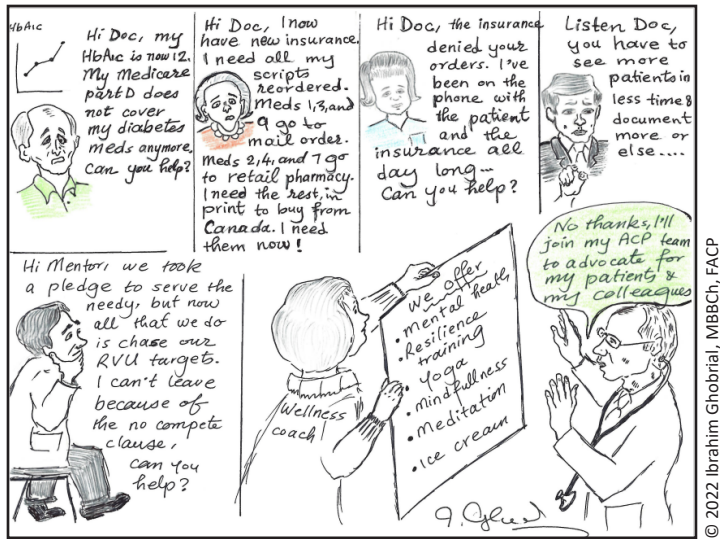 HbA1c
Hi Doc, my
HbA1c is now 12.
My Medicare
part D does
not cover
my diabetes
meds anymore.
Can you help?
Hi Doc, I now
have new insurance.
I need all my
scripts
reordered.
Meds 1,3, and
9 go to
mail order.
Meds 2,4, and 7 go
to retail pharmacy.
I need the rest, in
print to buy from
Canada. I need
them now!
Hi Doc, the insurance
denied your
orders. I've
been on the
phone with
the patient
and the
insurance all
day long...
Can you help?
Listen Doc,
you have to
see more
patients in
less time &
document
more or
else....
Hi Mentor, we took
a pledge to serve the
needy, but now
all that we do
is chase our
RVU targets.
I can't leave
because of
the no compete
clause,
can you
help?
Wellness
coach
We offer
• mental health
• Resilience
training
• Yoga
• mindfullness
• Meditation
• Ice cream
No thanks, I'll
join my ACP team
to advocate for
my patients &
my colleagues
© 2022 Ibrahim Ghobrial, MBBCh, FACP